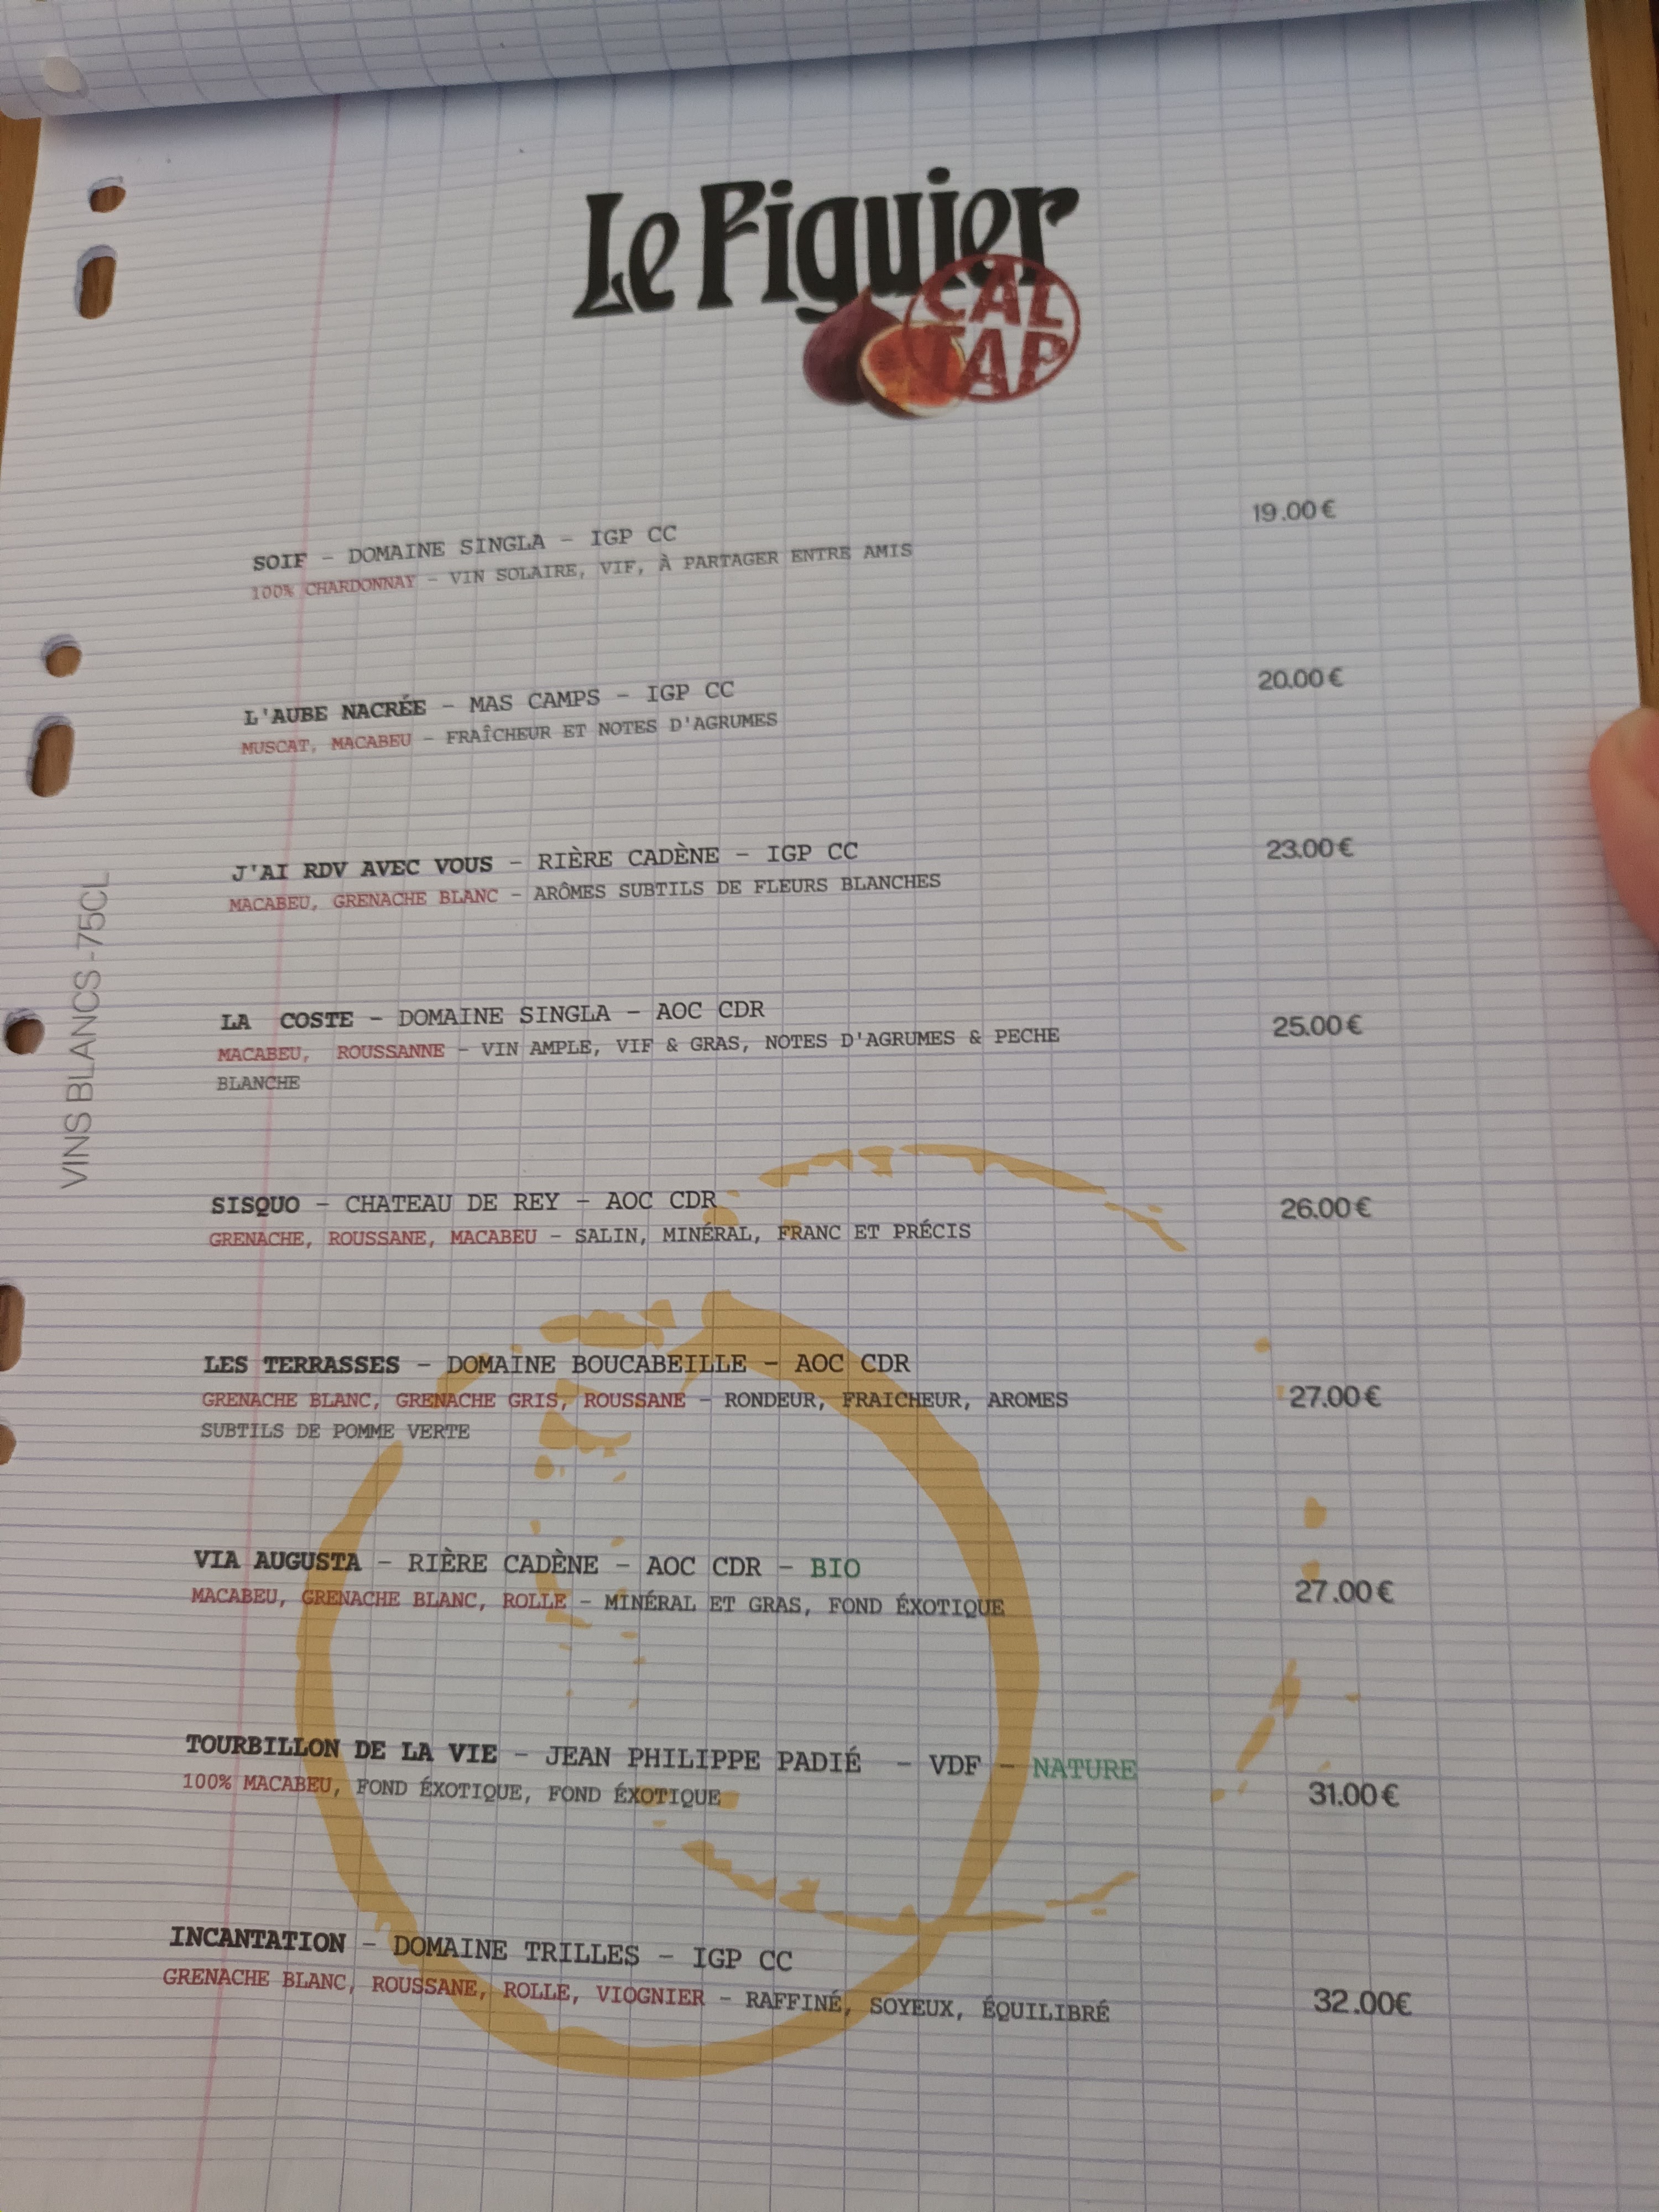 Le Figuier
CAL
TAP
VINS BLANCS - 75CL
SOIF - DOMAINE SINGLA - IGP CC 19.00€
100% CHARDONNAY - VIN SOLAIRE, VIF, À PARTAGER ENTRE AMIS
L'AUBE NACRÉE - MAS CAMPS - IGP CC 20.00€
MUSCAT, MACABEU - FRAÎCHEUR ET NOTES D'AGRUMES
J'AI RDV AVEC VOUS - RIÈRE CADÈNE - IGP CC 23.00€
MACABEU, GRENACHE BLANC - ARÔMES SUBTILS DE FLEURS BLANCHES
LA COSTE - DOMAINE SINGLA - AOC CDR 25.00€
MACABEU, ROUSSANNE - VIN AMPLE, VIF & GRAS, NOTES D'AGRUMES & PECHE
BLANCHE
SISQUO - CHATEAU DE REY - AOC CDR 26.00€
GRENACHE, ROUSSANE, MACABEU - SALIN, MINÉRAL, FRANC ET PRÉCIS
LES TERRASSES - DOMAINE BOUCABEILLE - AOC CDR
GRENACHE BLANC, GRENACHE GRIS, ROUSSANE - RONDEUR, FRAICHEUR, AROMES 27.00€
SUBTILS DE POMME VERTE
VIA AUGUSTA - RIÈRE CADÈNE - AOC CDR - BIO
MACABEU, GRENACHE BLANC, ROLLE - MINÉRAL ET GRAS, FOND ÉXOTIQUE 27.00€
TOURBILLON DE LA VIE - JEAN PHILIPPE PADIÉ - VDF - NATURE
100% MACABEU, FOND ÉXOTIQUE, FOND ÉXOTIQUE 31.00€
INCANTATION - DOMAINE TRILLES - IGP CC
GRENACHE BLANC, ROUSSANE, ROLLE, VIOGNIER - RAFFINÉ, SOYEUX, ÉQUILIBRÉ 32.00€